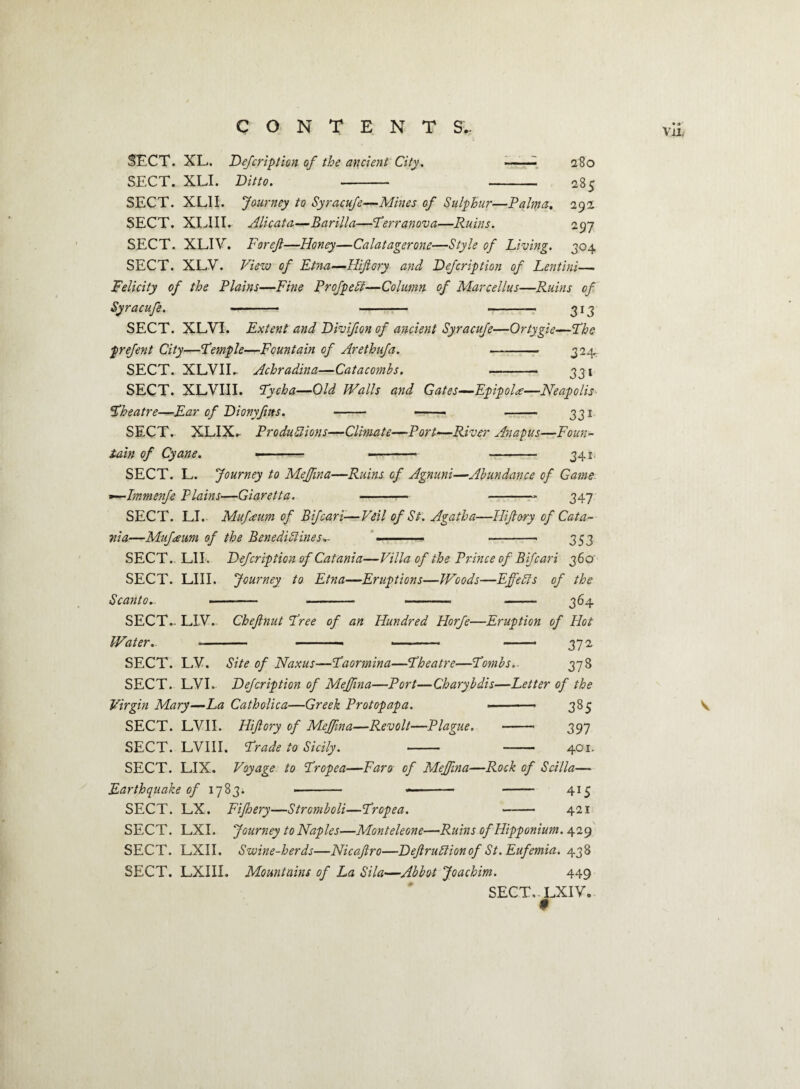 CONTENTS. vii
SECT. XL. Deſcription of the ancient City. —— 280
SECT. XLI. Ditto. —— —— 285
SECT. XLII. Journey to Syracuſe—Mines of Sulphur—Palma. 292
SECT. XLIII. Alicata—Barilla—Terranova—Ruins. 297
SECT. XLIV. Foreſt—Honey—Calatagerone—Style of Living. 304
SECT. XLV. View of Etna—Hiſtory and Deſcription of Lentini—
Felicity of the Plains—Fine Proſpect—Column of Marcellus—Ruins of
Syracuſe. —— —— —— 313
SECT. XLVI. Extent and Diviſion of ancient Syracuſe—Ortygie—The
preſent City—Temple—Fountain of Arethuſa. —— 324
SECT. XLVII. Achradina—Catacombs. —— 331
SECT. XLVIII. Tycha—Old Walls and Gates—Epipolæ—Neapolis
Theatre—Ear of Dionyſius. —— —— —— 331
SECT. XLIX. Productions—Climate—Port—River Anapus—Foun-
tain of Cyane. —— —— —— 341
SECT. L. Journey to Meſſina—Ruins of Agnuni—Abundance of Game
—Immenſe Plains—Giaretta. —— —— 347
SECT. LI. Muſæum of Biſcari—Veil of St. Agatha—Hiſtory of Cata-
nia—Muſæum of the Benedictines. —— —— 353
SECT. LII. Deſcription of Catania—Villa of the Prince of Biſcari 360
SECT. LIII. Journey to Etna—Eruptions—Woods—Effects of the
Scanto. —— —— —— —— 364
SECT. LIV. Cheſtnut Tree of an Hundred Horſe—Eruption of Hot
Water. —— —— —— —— 372
SECT. LV. Site of Naxus—Taormina—Theatre—Tombs. 378
SECT. LVI. Deſcription of Meſſina—Port—Charybdis—Letter of the
Virgin Mary—La Catholica—Greek Protopapa. —— 385
SECT. LVII. Hiſtory of Meſſina—Revolt—Plague. —— 397
SECT. LVIII. Trade to Sicily. —— —— 401
SECT. LIX. Voyage to Tropea—Faro of Meſſina—Rock of Scilla—
Earthquake of 1783. —— —— —— 415
SECT. LX. Fiſhery—Stromboli—Tropea. —— 421
SECT. LXI. Journey to Naples—Monteleone—Ruins of Hipponium. 429
SECT. LXII. Swine-herds—Nicaſtro—Deſtruction of St. Eufemia. 438
SECT. LXIII. Mountains of La Sila—Abbot Joachim. 449
SECT. LXIV.